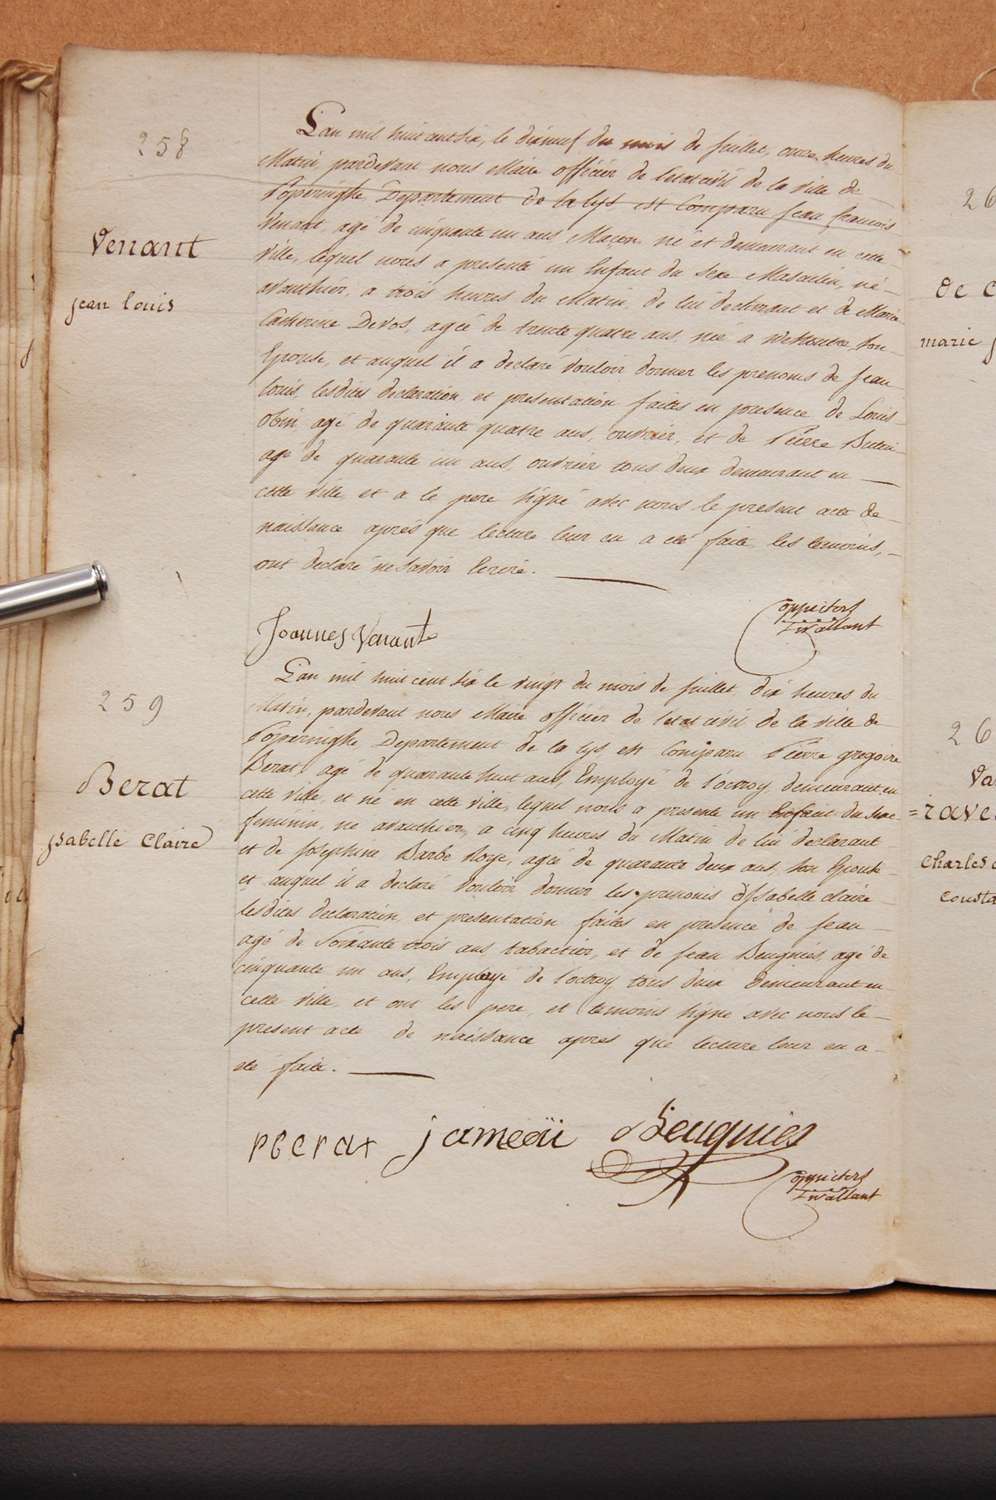 258
Venant
jean louis
L'an mil huit cent six, le dixneuf du mois de juillet, onze heures du
Matin, pardevant nous Maire officier de l'etat civil de la Ville de
Poperinghe Departement de la Lys est Comparu Jean francois
Venant, agé de cinquante un ans Maçon né et demeurant en cette
ville, lequel nous a presenté un Enfant du Sexe Masculin, né
avanthier, a trois heures du Matin, de lui declarant et de Marie
Catherine Devos, agée de trente quatre ans, née a Westoutre son
Epouse, et auquel il a declaré vouloir donner les prenoms de Jean
Louis, lesdites declaration et presentation faites en presence de Louis
agé de quarante quatre ans, ouvrier, et de Pierre
agé de quarante un ans, ouvrier tous deux demeurant en
cette ville et a le pere signé avec nous le present acte de
naissance après que lecture leur en a eté faite les temoins,
ont declaré ne savoir Ecrire.
Joannes Venant
259
Berat
isabelle Claire
L'an mil huit cent six le vingt du mois de Juillet dix heures du
Matin, pardevant nous Maire officier de l'etat civil de la ville de
Poperinghe Departement de la Lys est Comparu Pierre gregoire
Berat, agé de quarante huit ans, Employé de l'octroy demeurant en
cette ville, et né en cette ville, lequel nous a presenté un Enfant du Sexe
feminin, né avanthier, a cinq heures du Matin de lui declarant
et de Josephine Barbe agée de quarante deux ans, son Epouse
et auquel il a declaré vouloir donner les prenoms d'Isabelle claire
lesdites declaration, et presentation faites en presence de Jean
agé de Soixante trois ans, et de Jean Beugnies agé de
cinquante un ans, Employé de l'octroy tous deux demeurant en
cette ville, et ont les pere, et temoins signé avec nous le
present acte de naissance apres que lecture leur en a
eté faite.
PBerat jameoü Beugnies
26
de C
marie j
26
Va
=irave
Charles
Consta